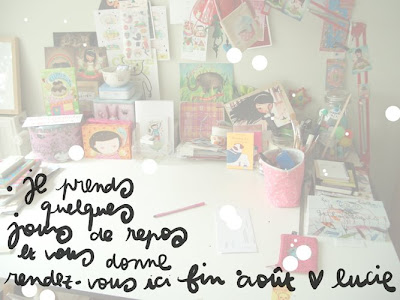 . je prends
quelques
jours de repos
et vous donne
rendez-vous ici fin août ♥ lucie